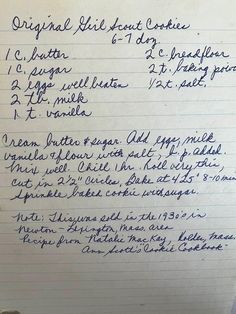 Original Girl Scout Cookies
6-7 doz
1 c. butter 2 c. bread flour
1 c. sugar 2 t. baking powd
2 eggs well beaten 1/2 t. salt.
2 tb. milk
1 t. vanilla
Cream butter & sugar. Add eggs, milk
vanilla & flour with salt, b.p. added.
Mix well. Chill 1 hr. Roll very thin,
cut in 2½" circles, Bake at 425° 8-10 min
Sprinkle baked cookie with sugar.
Note: This was sold in the 1930's in
Newton - Lexington, Mass area
Recipe from Natalie MacKay, Holden, Mass.
Ann Scott's Cookie Cookbook